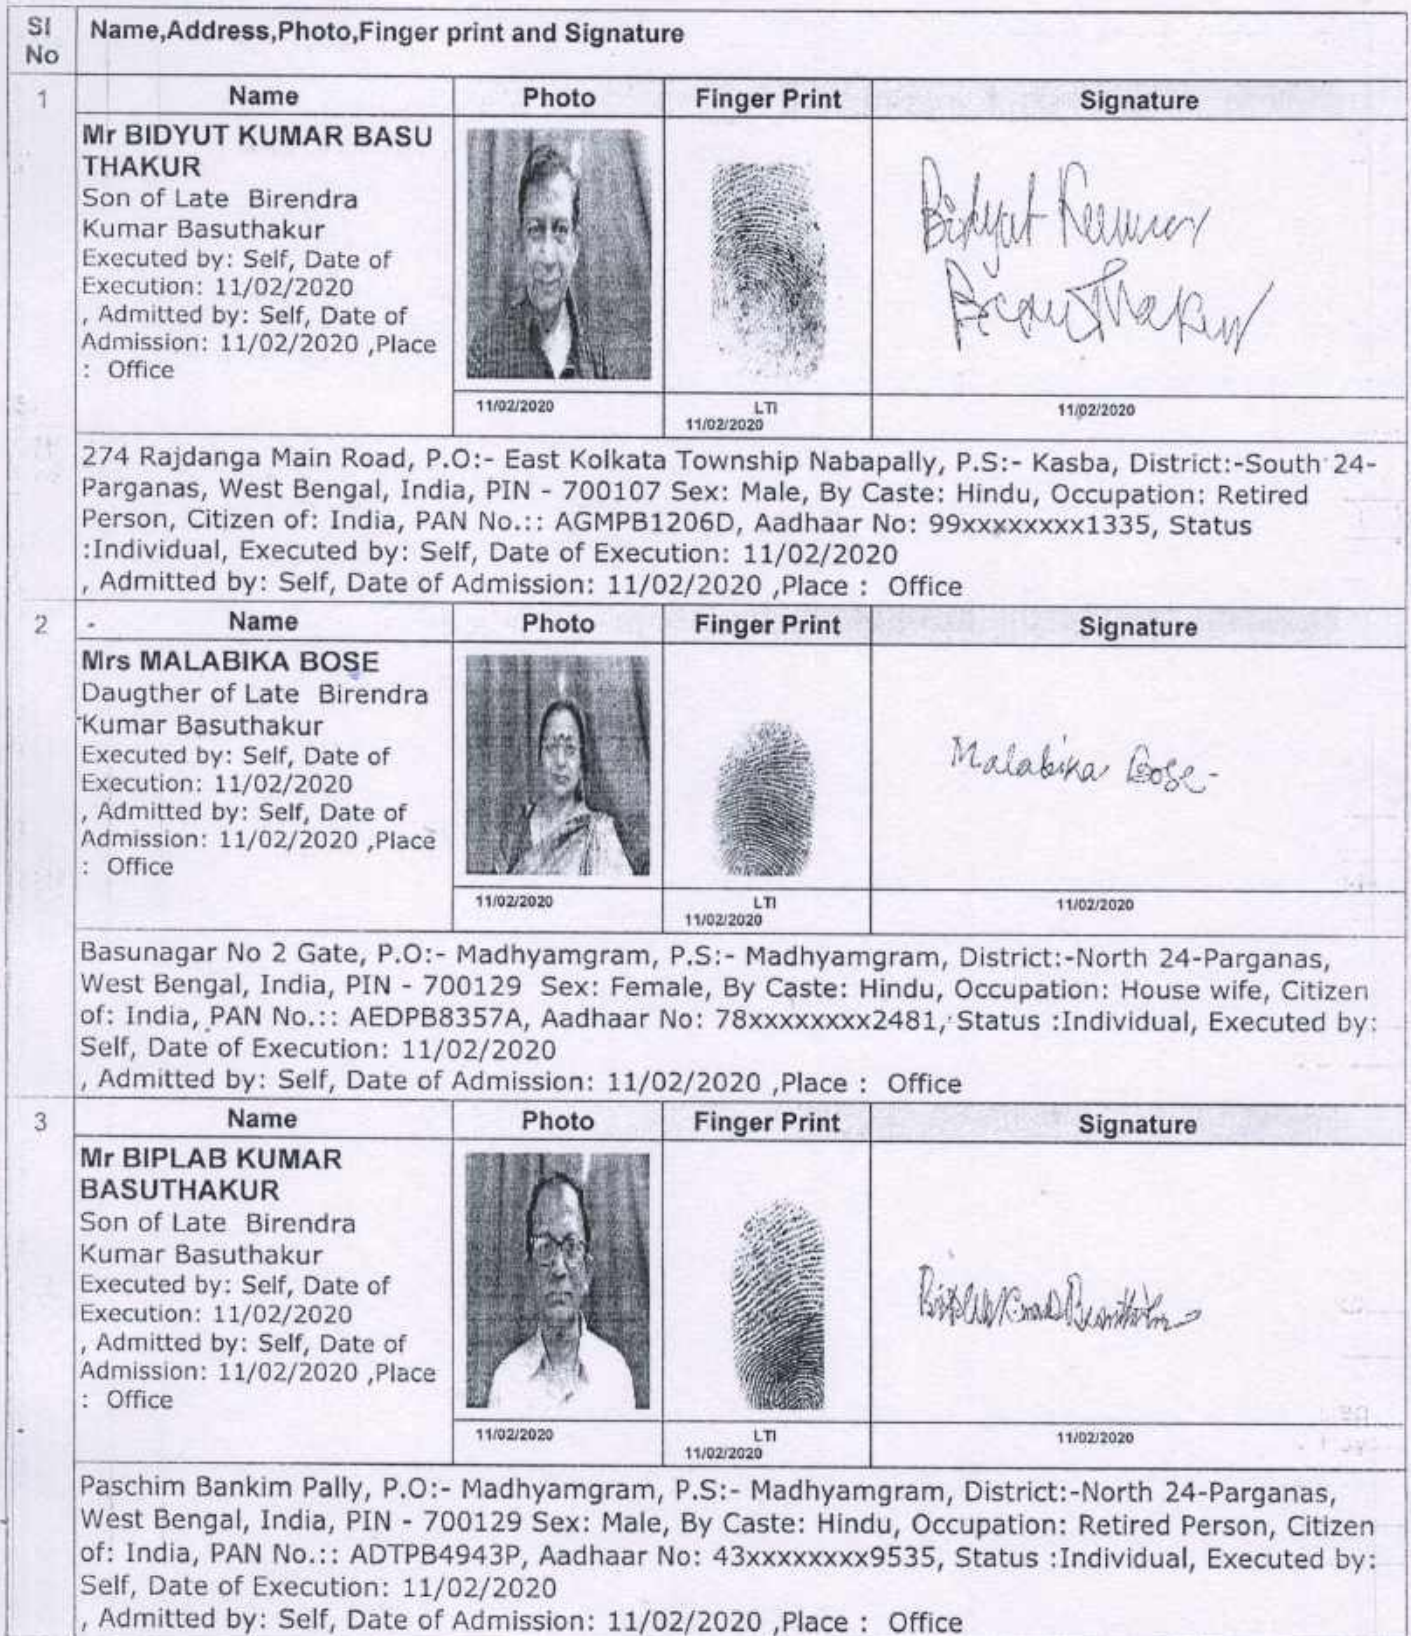 Sl No
Name,Address,Photo,Finger print and Signature
1
Name
Photo
Finger Print
Signature
Mr BIDYUT KUMAR BASU
THAKUR
Son of Late Birendra
Kumar Basuthakur
Executed by: Self, Date of
Execution: 11/02/2020
, Admitted by: Self, Date of
Admission: 11/02/2020 ,Place
: Office
Bidyut Kumar
Basu Thakur
11/02/2020
LTI
11/02/2020
11/02/2020
274 Rajdanga Main Road, P.O:- East Kolkata Township Nabapally, P.S:- Kasba, District:-South 24-
Parganas, West Bengal, India, PIN - 700107 Sex: Male, By Caste: Hindu, Occupation: Retired
Person, Citizen of: India, PAN No.:: AGMPB1206D, Aadhaar No: 99xxxxxxxx1335, Status
:Individual, Executed by: Self, Date of Execution: 11/02/2020
, Admitted by: Self, Date of Admission: 11/02/2020 ,Place : Office
2
Name
Photo
Finger Print
Signature
Mrs MALABIKA BOSE
Daugther of Late Birendra
Kumar Basuthakur
Executed by: Self, Date of
Execution: 11/02/2020
, Admitted by: Self, Date of
Admission: 11/02/2020 ,Place
: Office
Malabika Bose
11/02/2020
LTI
11/02/2020
11/02/2020
Basunagar No 2 Gate, P.O:- Madhyamgram, P.S:- Madhyamgram, District:-North 24-Parganas,
West Bengal, India, PIN - 700129 Sex: Female, By Caste: Hindu, Occupation: House wife, Citizen
of: India, PAN No.:: AEDPB8357A, Aadhaar No: 78xxxxxxxx2481, Status :Individual, Executed by:
Self, Date of Execution: 11/02/2020
, Admitted by: Self, Date of Admission: 11/02/2020 ,Place : Office
3
Name
Photo
Finger Print
Signature
Mr BIPLAB KUMAR
BASUTHAKUR
Son of Late Birendra
Kumar Basuthakur
Executed by: Self, Date of
Execution: 11/02/2020
, Admitted by: Self, Date of
Admission: 11/02/2020 ,Place
: Office
11/02/2020
LTI
11/02/2020
11/02/2020
Paschim Bankim Pally, P.O:- Madhyamgram, P.S:- Madhyamgram, District:-North 24-Parganas,
West Bengal, India, PIN - 700129 Sex: Male, By Caste: Hindu, Occupation: Retired Person, Citizen
of: India, PAN No.:: ADTPB4943P, Aadhaar No: 43xxxxxxxx9535, Status :Individual, Executed by:
Self, Date of Execution: 11/02/2020
, Admitted by: Self, Date of Admission: 11/02/2020 ,Place : Office